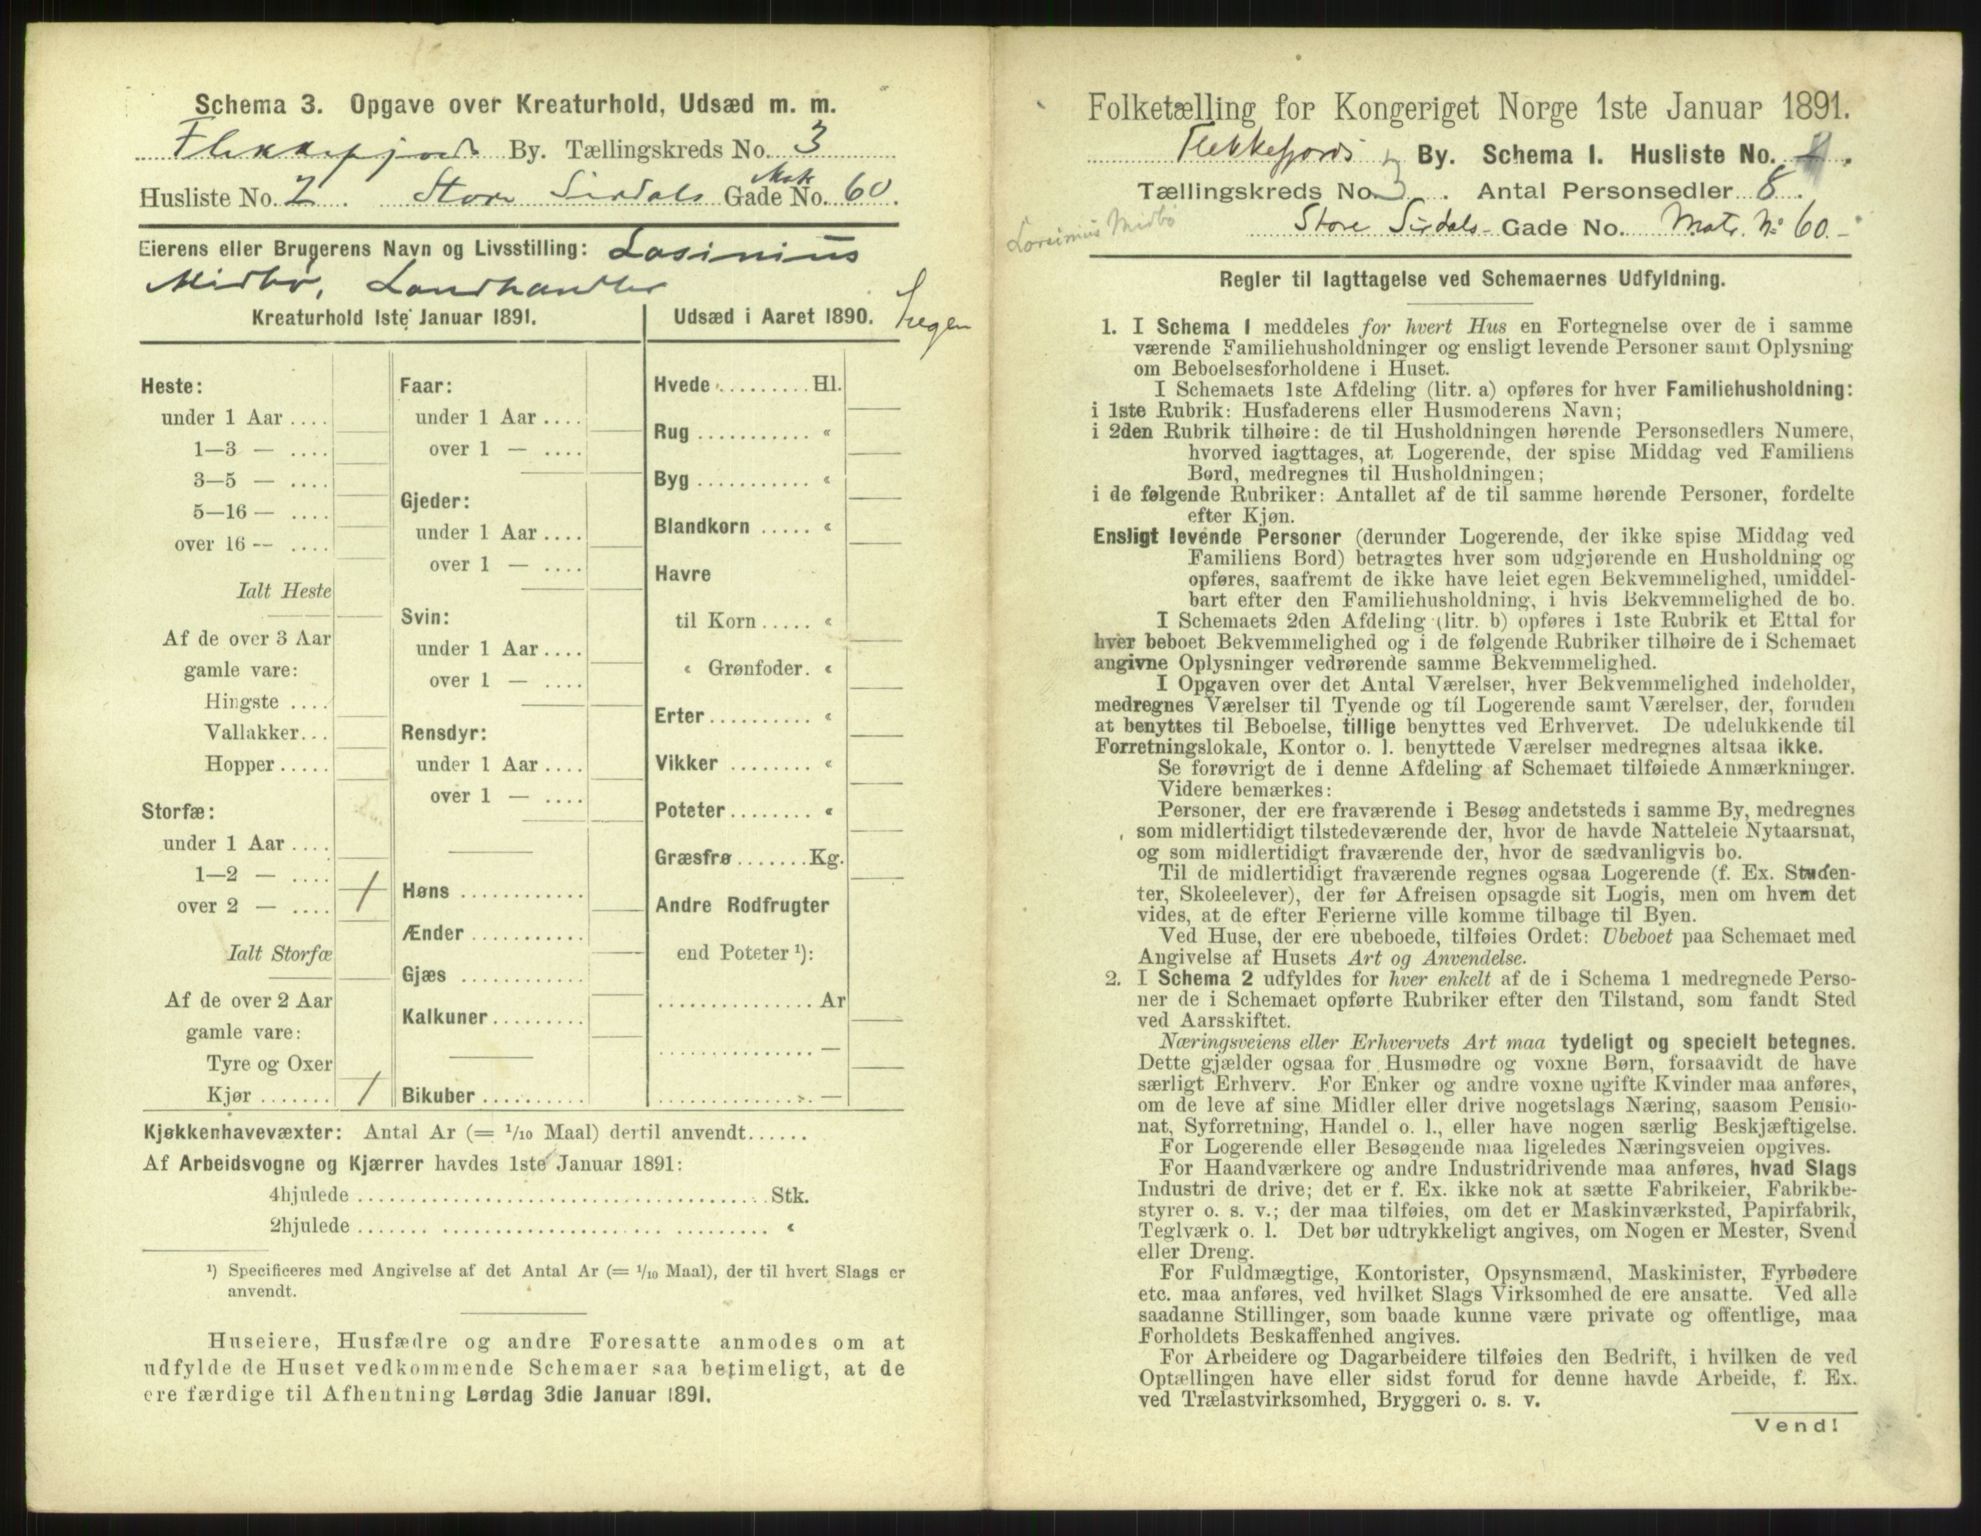 Schema 3. Opgave over Kreaturhold, Udsæd m. m.
Flekkefjords By. Tællingskreds No. 3
Husliste No. 2. Store Sirdals Gade Matr. No. 60.
Eierens eller Brugerens Navn og Livsstilling: Losinius
Midbø, Landhandler
Kreaturhold 1ste Januar 1891.
Udsæd i Aaret 1890.
Ingen
Heste:
under 1 Aar ....
1—3 — ....
3—5 — ....
5—16 — ....
over 16 — ....
Ialt Heste
Af de over 3 Aar
gamle vare:
Hingste ....
Vallakker...
Hopper .....
Storfæ:
under 1 Aar ....
1—2 — ....
over 2 — .... 1
Ialt Storfæ
Af de over 2 Aar
gamle vare:
Tyre og Oxer
Kjør ....... 1
Faar:
under 1 Aar ....
over 1 — ....
Gjeder:
under 1 Aar ....
over 1 — ....
Svin:
under 1 Aar ....
over 1 — ....
Rensdyr:
under 1 Aar ....
over 1 — ....
Høns ...........
Ænder ..........
Gjæs ...........
Kalkuner.........
Bikuber ..........
Hvede ......... Hl.
Rug ........... «
Byg ........... «
Blandkorn ..... «
Havre
til Korn ..... «
« Grønfoder. «
Erter ......... «
Vikker ........ «
Poteter ........ «
Græsfrø ....... Kg.
Andre Rodfrugter
end Poteter ¹):
............... Ar
............... —
............... —
Kjøkkenhavevæxter: Antal Ar (= 1/10 Maal) dertil anvendt......
Af Arbeidsvogne og Kjærrer havdes 1ste Januar 1891:
4hjulede ..................................... Stk.
2hjulede ..................................... «
¹) Specificeres med Angivelse af det Antal Ar (= 1/10 Maal), der til hvert Slags er
anvendt.
Huseiere, Husfædre og andre Foresatte anmodes om at
udfylde de Huset vedkommende Schemaer saa betimeligt, at de
ere færdige til Afhentning Lørdag 3die Januar 1891.
Folketælling for Kongeriget Norge 1ste Januar 1891.
Flekkefjords By. Schema I. Husliste No.
Tællingskreds No. 3. Antal Personsedler 8.
Lorsinius Midbø
Store Sirdals Gade No. Matr. No 60.
Regler til Iagttagelse ved Schemaernes Udfyldning.
1. I Schema 1 meddeles for hvert Hus en Fortegnelse over de i samme
værende Familiehusholdninger og ensligt levende Personer samt Oplysning
om Beboelsesforholdene i Huset.
I Schemaets 1ste Afdeling (litr. a) opføres for hver Familiehusholdning:
i 1ste Rubrik: Husfaderens eller Husmoderens Navn;
i 2den Rubrik tilhøire: de til Husholdningen hørende Personsedlers Numere,
hvorved iagttages, at Logerende, der spise Middag ved Familiens
Bord, medregnes til Husholdningen;
i de følgende Rubriker: Antallet af de til samme hørende Personer, fordelte
efter Kjøn.
Ensligt levende Personer (derunder Logerende, der ikke spise Middag ved
Familiens Bord) betragtes hver som udgjørende en Husholdning og
opføres, saafremt de ikke have leiet egen Bekvemmelighed, umiddel-
bart efter den Familiehusholdning, i hvis Bekvemmelighed de bo.
I Schemaets 2den Afdeling (litr. b) opføres i 1ste Rubrik et Ettal for
hver beboet Bekvemmelighed og i de følgende Rubriker tilhøire de i Schemaet
angivne Oplysninger vedrørende samme Bekvemmelighed.
I Opgaven over det Antal Værelser, hver Bekvemmelighed indeholder,
medregnes Værelser til Tyende og til Logerende samt Værelser, der, foruden
at benyttes til Beboelse, tillige benyttes ved Erhvervet. De udelukkende til
Forretningslokale, Kontor o. l. benyttede Værelser medregnes altsaa ikke.
Se forøvrigt de i denne Afdeling af Schemaet tilføiede Anmærkninger.
Videre bemærkes:
Personer, der ere fraværende i Besøg andetsteds i samme By, medregnes
som midlertidigt tilstedeværende der, hvor de havde Natteleie Nytaarsnat,
og som midlertidigt fraværende der, hvor de sædvanligvis bo.
Til de midlertidigt fraværende regnes ogsaa Logerende (f. Ex. Studen-
ter, Skoleelever), der før Afreisen opsagde sit Logis, men om hvem det
vides, at de efter Ferierne ville komme tilbage til Byen.
Ved Huse, der ere ubeboede, tilføies Ordet: Ubeboet paa Schemaet med
Angivelse af Husets Art og Anvendelse.
2. I Schema 2 udfyldes for hver enkelt af de i Schema 1 medregnede Perso-
ner de i Schemaet opførte Rubriker efter den Tilstand, som fandt Sted
ved Aarsskiftet.
Næringsveiens eller Erhvervets Art maa tydeligt og specielt betegnes.
Dette gjælder ogsaa for Husmødre og voxne Børn, forsaavidt de have
særligt Erhverv. For Enker og andre voxne ugifte Kvinder maa anføres,
om de leve af sine Midler eller drive nogetslags Næring, saasom Pensio-
nat, Syforretning, Handel o. l., eller have nogen særlig Beskjæftigelse.
For Logerende eller Besøgende maa ligeledes Næringsveien opgives.
For Haandværkere og andre Industridrivende maa anføres, hvad Slags
Industri de drive; det er f. Ex. ikke nok at sætte Fabrikeier, Fabrikbe-
styrer o. s. v.; der maa tilføies, om det er Maskinværksted, Papirfabrik,
Teglværk o. l. Det bør udtrykkeligt angives, om Nogen er Mester, Svend
eller Dreng.
For Fuldmægtige, Kontorister, Opsynsmænd, Maskinister, Fyrbødere
etc. maa anføres, ved hvilket Slags Virksomhed de ere ansatte. Ved alle
saadanne Stillinger, som baade kunne være private og offentlige, maa
Forholdets Beskaffenhed angives.
For Arbeidere og Dagarbeidere tilføies den Bedrift, i hvilken de ved
Optællingen have eller sidst forud for denne havde Arbeide, f. Ex.
ved Trælastvirksomhed, Bryggeri o. s. v.
Vend!